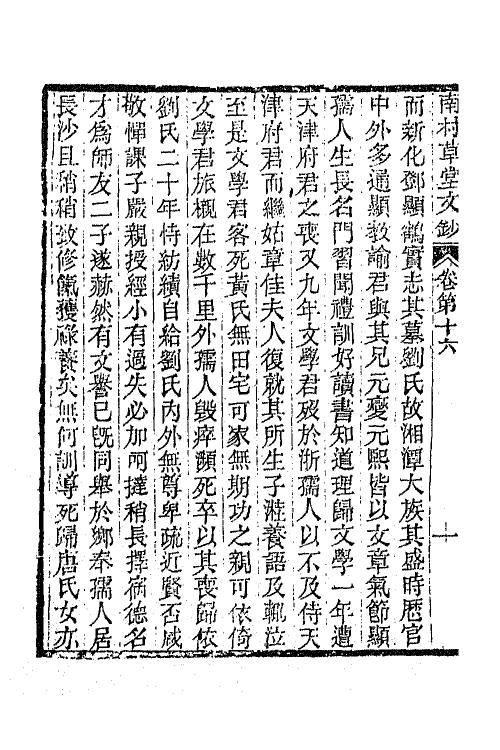 南村草堂文鈔 卷第十六 一
而新化鄧顯鶴實志其墓劉氏故湘潭大族其盛時歷官
中外多通顯教諭君與其兄元燮元熙皆以文章氣節顯
孺人生長名門習聞禮訓好讀書知道理歸文學一年遭
天津府君之喪又九年文學君歿於浙孺人以不及侍天
津府君而繼姑章佳夫人復就其所生子漋養語及輒泣
至是文學君客死黃氏無田宅可家無期功之親可依倚
文學君旅櫬在數千里外孺人毀瘠瀕死卒以其喪歸依
劉氏二十年恃紡績自給劉氏內外無尊卑疏近賢否咸
敬憚課子嚴親授經小有過失必加呵撻稍長擇宿德名
才為師友二子遂赫然有文譽已旣同舉於鄉奉孺人居
長沙且稍稍致修氣獲祿養矣無何訓導死歸唐氏女亦